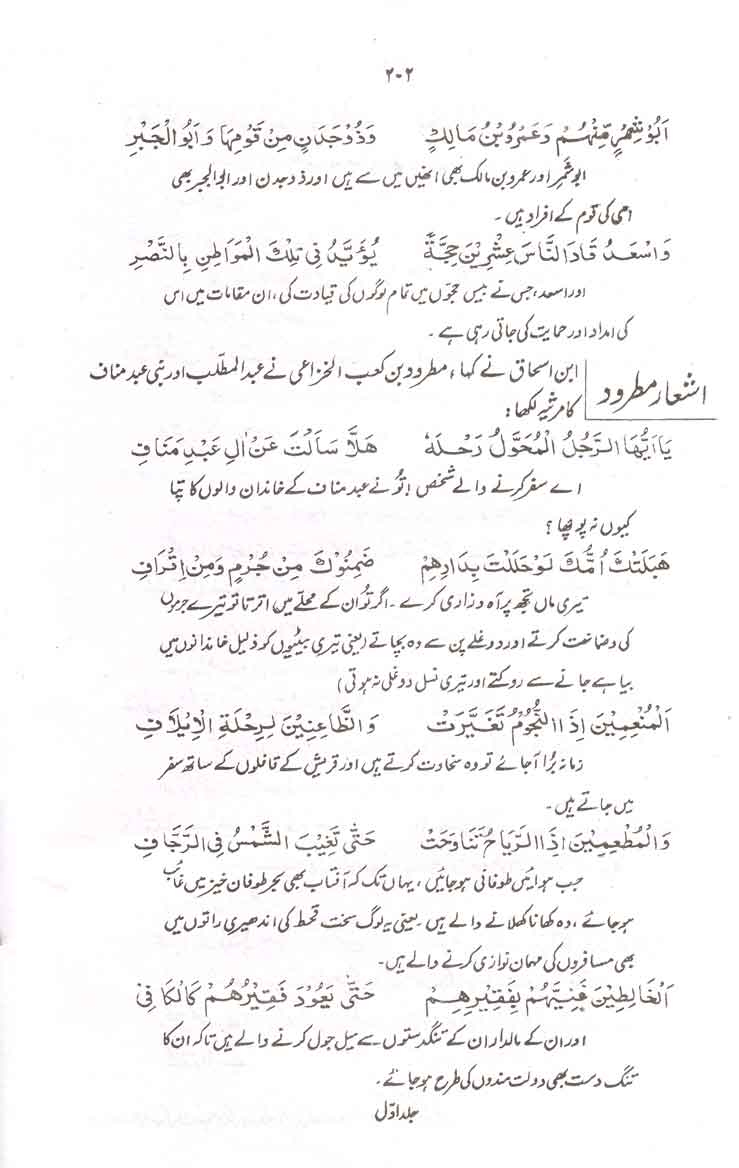 ۲۰۲
اَبُوْشِمْرٍ مِّنْهُمْ وَعَمْرُوبْنُ مَالِكٍ وَذُوْجَدَنٍ مِنْ قَوْمِهَا وَاَبُوالْجَبْرِ
ابوشمر اور عمرو بن مالک بھی انھیں میں سے ہیں اور ذوجدن اور ابوالجبر بھی
اسی کی قوم کے افراد ہیں۔
وَاَسْعَدُ قَادَ النَّاسَ عِشْرِيْنَ حِجَّةً يُؤَيَّدُ فِىْ تِلْكَ الْمَوَاطِنِ بِالنَّصْرِ
اور اسعد، جس نے بیس حجوں میں تمام لوگوں کی قیادت کی، ان مقامات میں اس
کی امداد اور حمایت کی جاتی رہی ہے۔
اشعار مطرود
ابن اسحاق نے کہا، مطرود بن کعب الخزاعی نے عبدالمطلب اور بنی عبد مناف
کا مرثیہ لکھا:
يَااَيُّهَا الرَّجُلُ الْمُحَوَّلُ رَحْلَهٗ هَلَّا سَاَلْتَ عَنْ اٰلِ عَبْدِ مَنَافِ
اے سفر کرنے والے شخص! تُو نے عبد مناف کے خاندان والوں کا پتا
کیوں نہ پوچھا؟
هَبَلَتْكَ اُمُّكَ لَوْحَلَلْتَ بِدَارِهِمْ ضَمِنُوْكَ مِنْ جُرْمٍ وَمِنْ اِقْرَافِ
تیری ماں تجھ پر آہ و زاری کرے۔ اگر تُو ان کے محلے میں اترتا تو تیرے جرموں
کی وہ ضمانت کرتے اور دوغلے پن سے وہ بچاتے (یعنی تیری بیٹیوں کو ذلیل خاندانوں میں
بیاہے جانے سے روکتے اور تیری نسل دوغلی نہ ہوتی)
اَلْمُنْعِمِيْنَ اِذَا النُّجُوْمُ تَغَيَّرَتْ وَالظَّاعِنِيْنَ لِرِحْلَةِ الْاِيْلَافِ
زمانہ بُرا آجائے تو وہ سخاوت کرتے ہیں اور قریش کے قافلوں کے ساتھ سفر
میں جاتے ہیں۔
وَالْمُطْعِمِيْنَ اِذَا الرِّيَاحُ تَنَاوَحَتْ حَتّٰى تَغِيْبَ الشَّمْسُ فِى الرَّجَّافِ
جب ہوائیں طوفانی ہو جائیں، یہاں تک کہ آفتاب بھی بحر طوفان خیز میں غائب
ہو جائے، وہ کھانا کھلانے والے ہیں۔ یعنی یہ لوگ سخت قحط کی اندھیری راتوں میں
بھی مسافروں کی مہمان نوازی کرنے والے ہیں۔
اَلْخَالِطِيْنَ غَنِيَّهُمْ بِفَقِيْرِهِمْ حَتّٰى يَعُوْدَ فَقِيْرُهُمْ كَالْكَافِىْ
اور ان کے مالدار ان کے تنگدستوں سے میل جول کرنے والے ہیں تاکہ ان کا
تنگ دست بھی دولت مندوں کی طرح ہو جائے۔
جلد اوّل